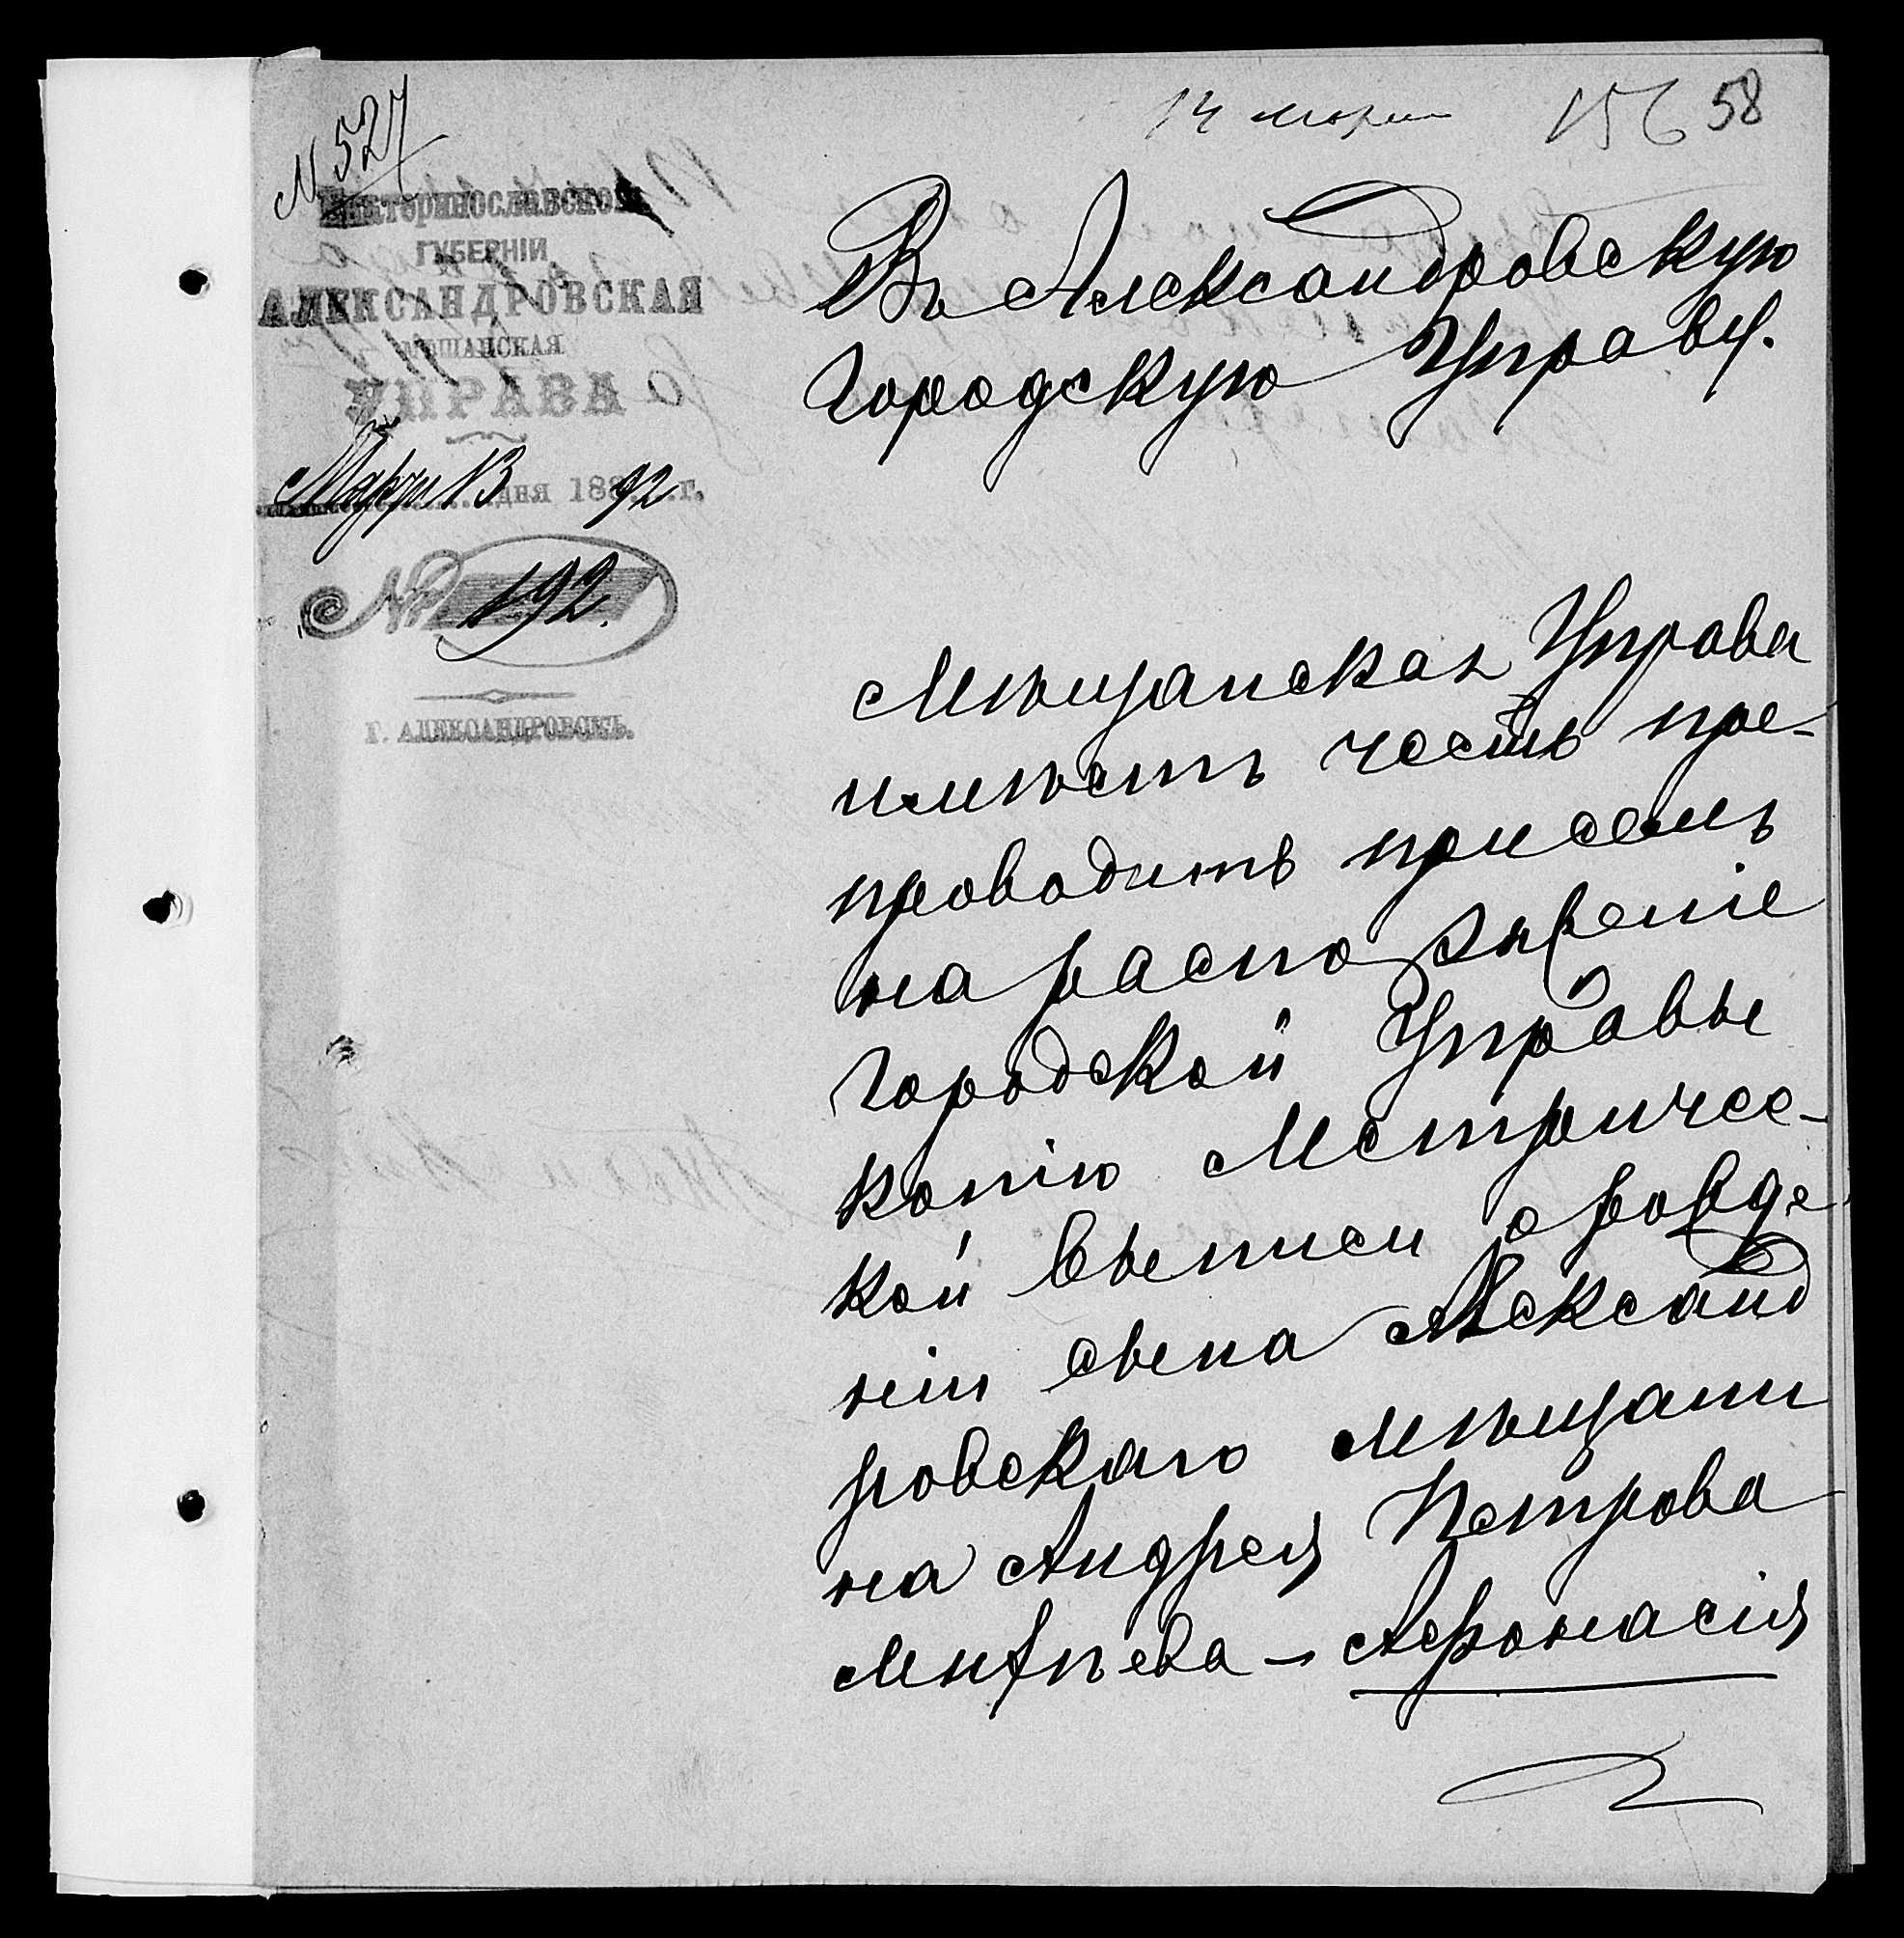 14 марта 156 58
№ 527
Екатеринославской
ГУБЕРНІИ
АЛЕКСАНДРОВСКАЯ
МѢЩАНСКАЯ
УПРАВА
Марта 13 дня 188 92 г.
№ 192.
Г. АЛЕКСАНДРОВСКЪ.
Въ Александровскую
Городскую Управу.
Мѣщанская Управа
имѣетъ честь пре-
проводить при семъ
на распоряженіе
Городской Управы
копію Метричес-
кой выписи о рожде
ніи сына Александ
ровскаго мѣщани
на Андрея Петрова
Афонасія